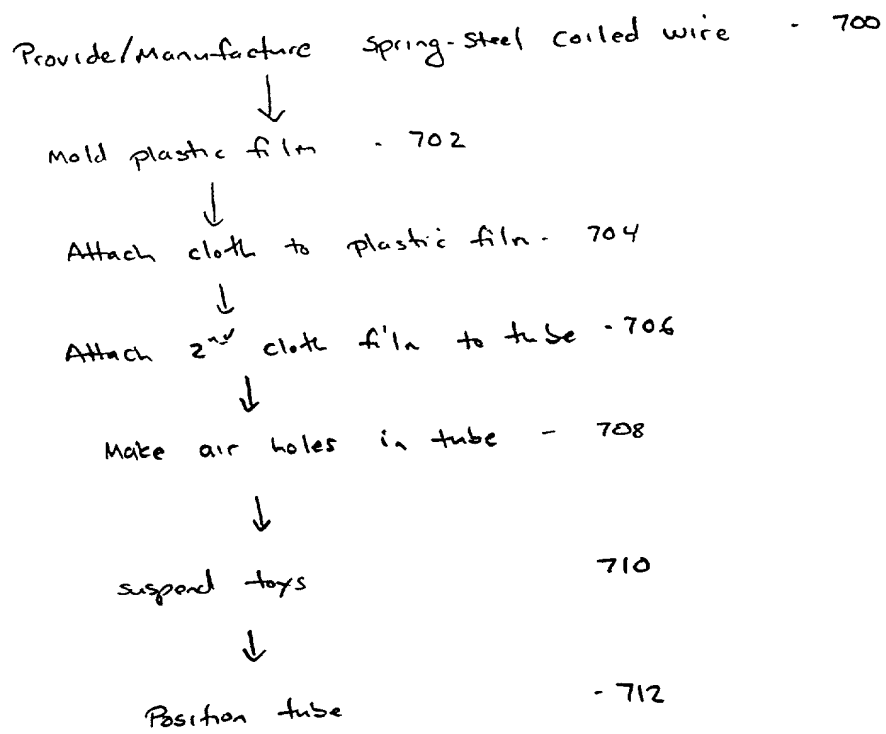 Provide/Manufacture spring-steel coiled wire - 700
Mold plastic film - 702
Attach cloth to plastic film - 704
Attach 2nd cloth film to tube - 706
Make air holes in tube - 708
suspend toys 710
Position tube - 712